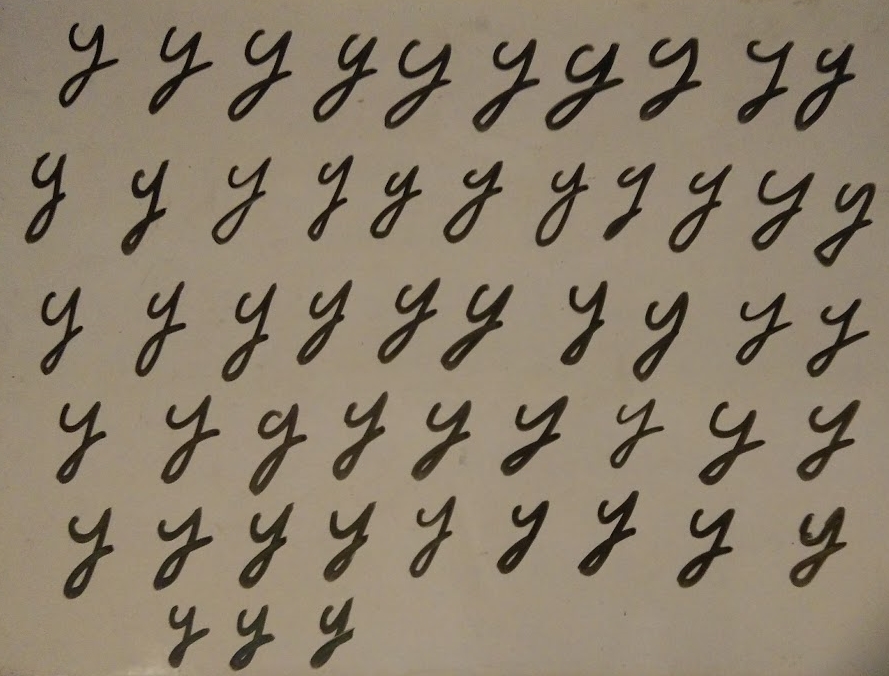 y y y y y y y y y y
y y y y y y y y y y y
y y y y y y y y y y
y y g y y y y y y
y y y y y y y y y
y y y